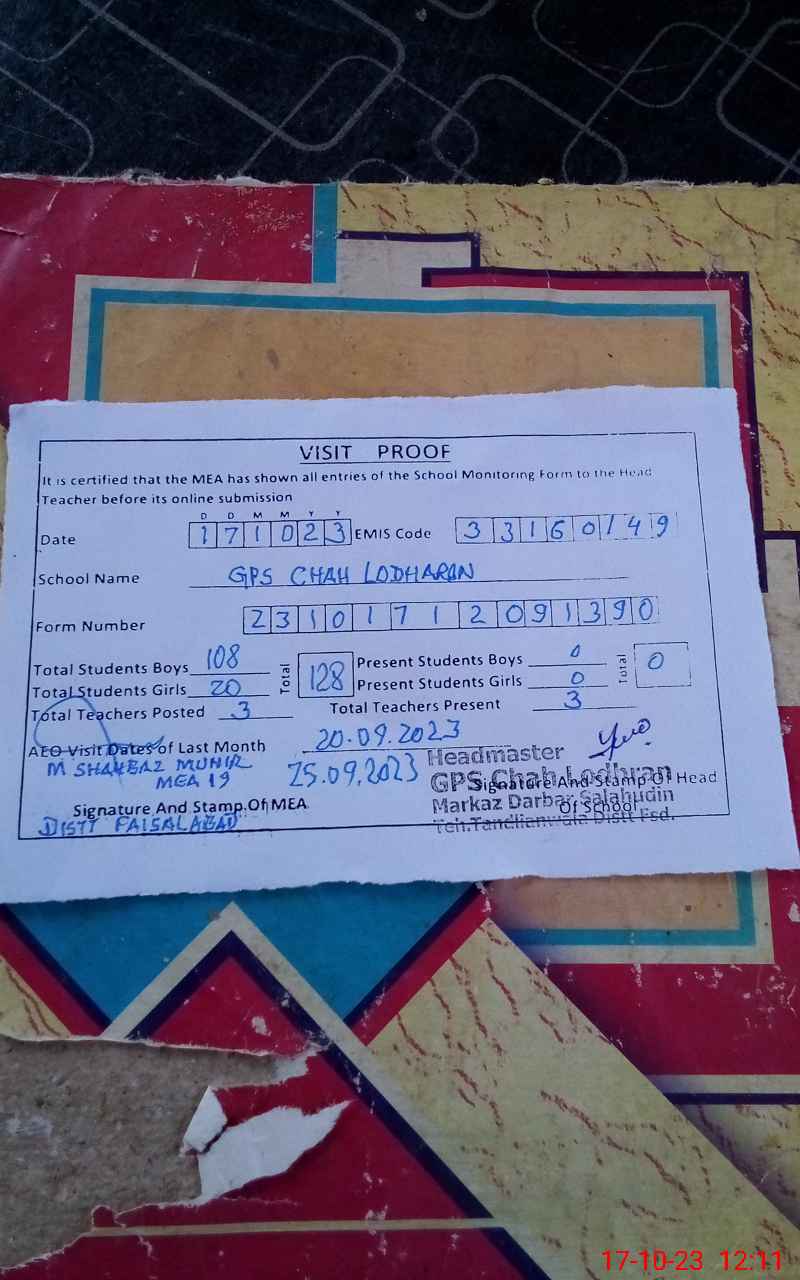 VISIT PROOF
It is certified that the MEA has shown all entries of the School Monitoring Form to the Head
Teacher before its online submission
D D M M Y Y
Date 171023 EMIS Code 33160149
School Name GPS CHAH LODHARAN
Form Number 23101712091390
Total Students Boys 108 Total 128 Present Students Boys 0 Total 0
Total Students Girls 20 Present Students Girls 0
Total Teachers Posted 3 Total Teachers Present 3
AEO Visit Dates of Last Month 20.09.2023
25.09.2023
M SHAHBAZ MUNIR
MEA 19
Signature And Stamp Of MEA
DISTT FAISALABAD
Headmaster
GPS Chah Lodhran
Markaz Darbar Salahudin
Teh.Tandlianwala Distt Fsd.
Signature And Stamp Of Head
Of School
17-10-23 12:11